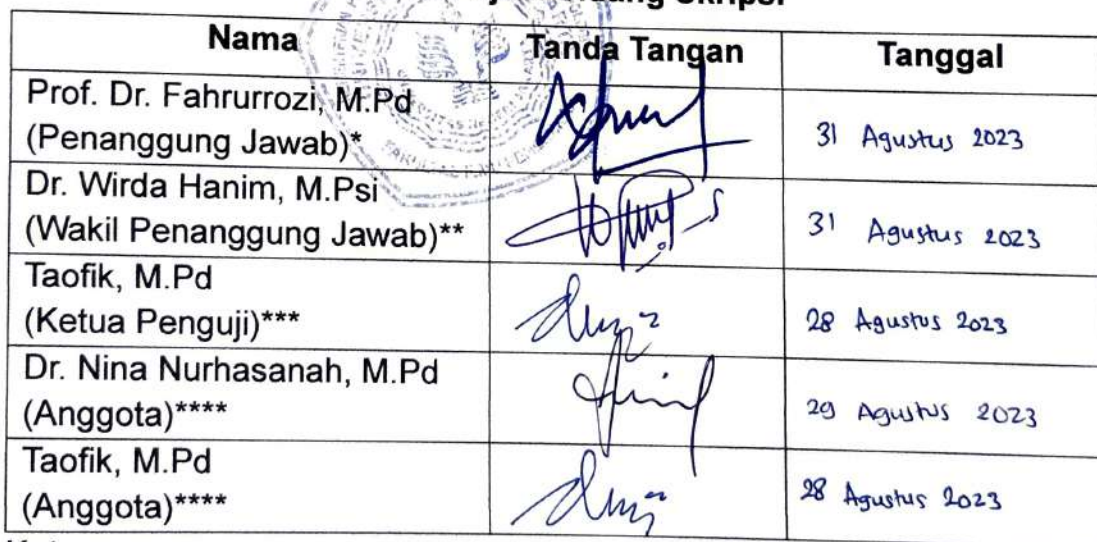 Nama Tanda Tangan Tanggal
Prof. Dr. Fahrurrozi, M.Pd
(Penanggung Jawab)* 31 Agustus 2023
Dr. Wirda Hanim, M.Psi
(Wakil Penanggung Jawab)** 31 Agustus 2023
Taofik, M.Pd
(Ketua Penguji)*** 28 Agustus 2023
Dr. Nina Nurhasanah, M.Pd
(Anggota)**** 29 Agustus 2023
Taofik, M.Pd
(Anggota)**** 28 Agustus 2023